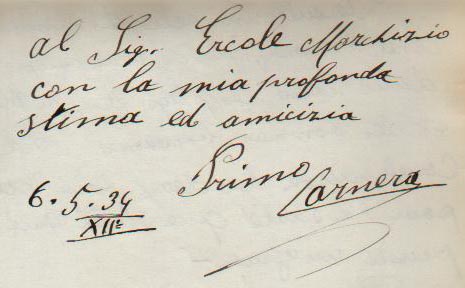 al Sig. Ercole Marchisio
con la mia profonda
stima ed amicizia
Primo
Carnera
6.5.34
XIIº